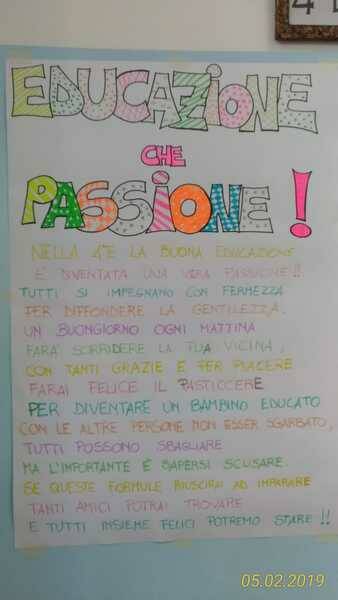 EDUCAZIONE
CHE
PASSIONE!
NELLA 4°E LA BUONA EDUCAZIONE
E' DIVENTATA UNA VERA PASSIONE!!
TUTTI SI IMPEGNANO CON FERMEZZA
PER DIFFONDERE LA GENTILEZZA.
UN BUONGIORNO OGNI MATTINA
FARÀ SORRIDERE LA TUA VICINA,
CON TANTI GRAZIE E PER PIACERE
FARAI FELICE IL PASTICCERE
PER DIVENTARE UN BAMBINO EDUCATO
CON LE ALTRE PERSONE NON ESSER SGARBATO,
TUTTI POSSONO SBAGLIARE
MA L'IMPORTANTE È SAPERSI SCUSARE.
SE QUESTE FORMULE RIUSCIRAI AD IMPARARE
TANTI AMICI POTRAI TROVARE
E TUTTI INSIEME FELICI POTREMO STARE!!
05.02.2019